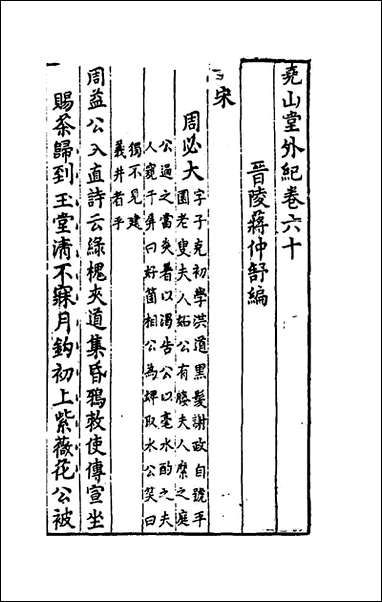 堯山堂外紀卷六十
晉陵蔣仲舒編
宋
周必大字子充初學洪道黑髮謝政自號平
園老叟夫人妬公有媵夫人縻之庭
公過之當炎暑以渴告公以毫水酌之夫
人窺于屏曰好箇相公為婢取水公笑曰
獨不見建
義井者乎
周益公入直詩云綠槐夾道集昏鴉敕使傳宣坐
賜茶歸到玉堂清不寐月鈎初上紫薇花公被